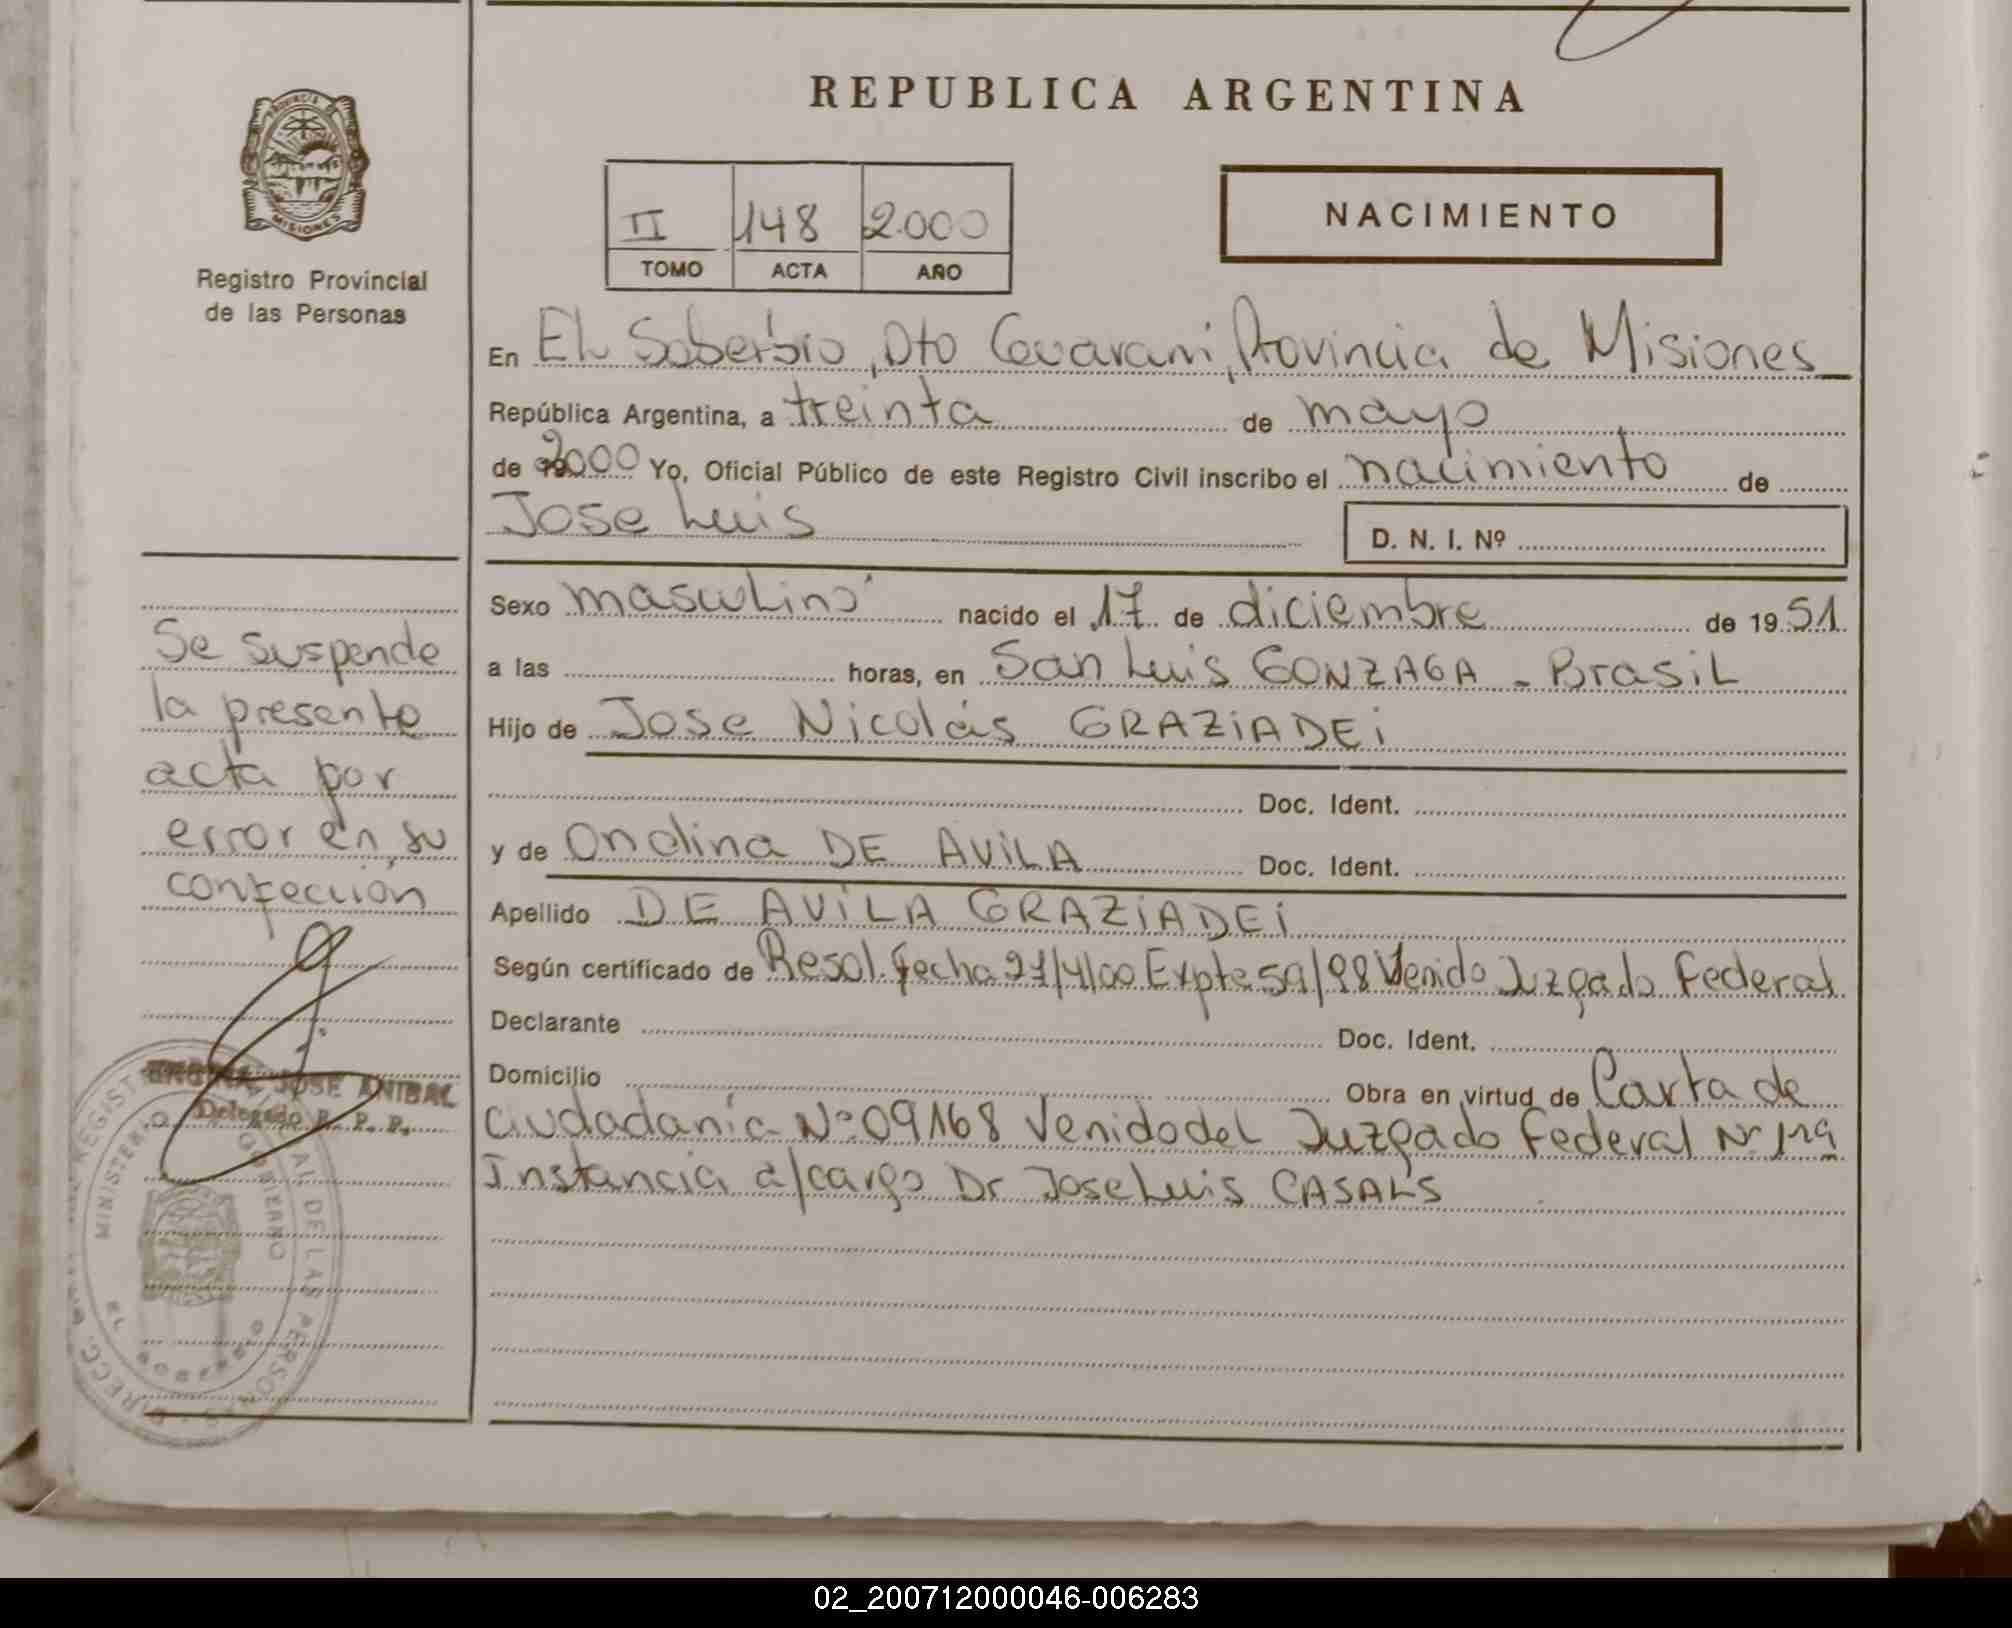 REPUBLICA ARGENTINA
PROVINCIA DE
MISIONES
Registro Provincial
de las Personas
II 148 2.000
TOMO ACTA AÑO
NACIMIENTO
En EL Soberbio, Dto Guarani, Provincia de Misiones
República Argentina, a treinta de mayo
de 2000 Yo, Oficial Público de este Registro Civil inscribo el nacimiento de
Jose Luis
D. N. I. Nº
Sexo masculino nacido el 17 de diciembre de 1951
a las horas, en San Luis GONZAGA - Brasil
Hijo de Jose Nicolás GRAZiADEi
Doc. Ident.
y de Ondina DE AViLA Doc. Ident.
Apellido DE AViLA GRAZiADEi
Según certificado de Resol. fecha 27/4/00 Expte 59/98 Venido Juzgado Federal
Declarante Doc. Ident.
Domicilio Obra en virtud de Carta de
Ciudadanía Nº 09168 Venido del Juzgado Federal Nº 1 
Instancia a/cargo Dr Jose Luis CASALS
Se suspende
la presente
acta por
error en su
confección
JOSE ANIBAL
Delegado R. P. P.
MINISTERIO GOBIERNO
DIRECC. REGIST DE LAS PERSONAS
EL SOBERBIO
02_200712000046-006283